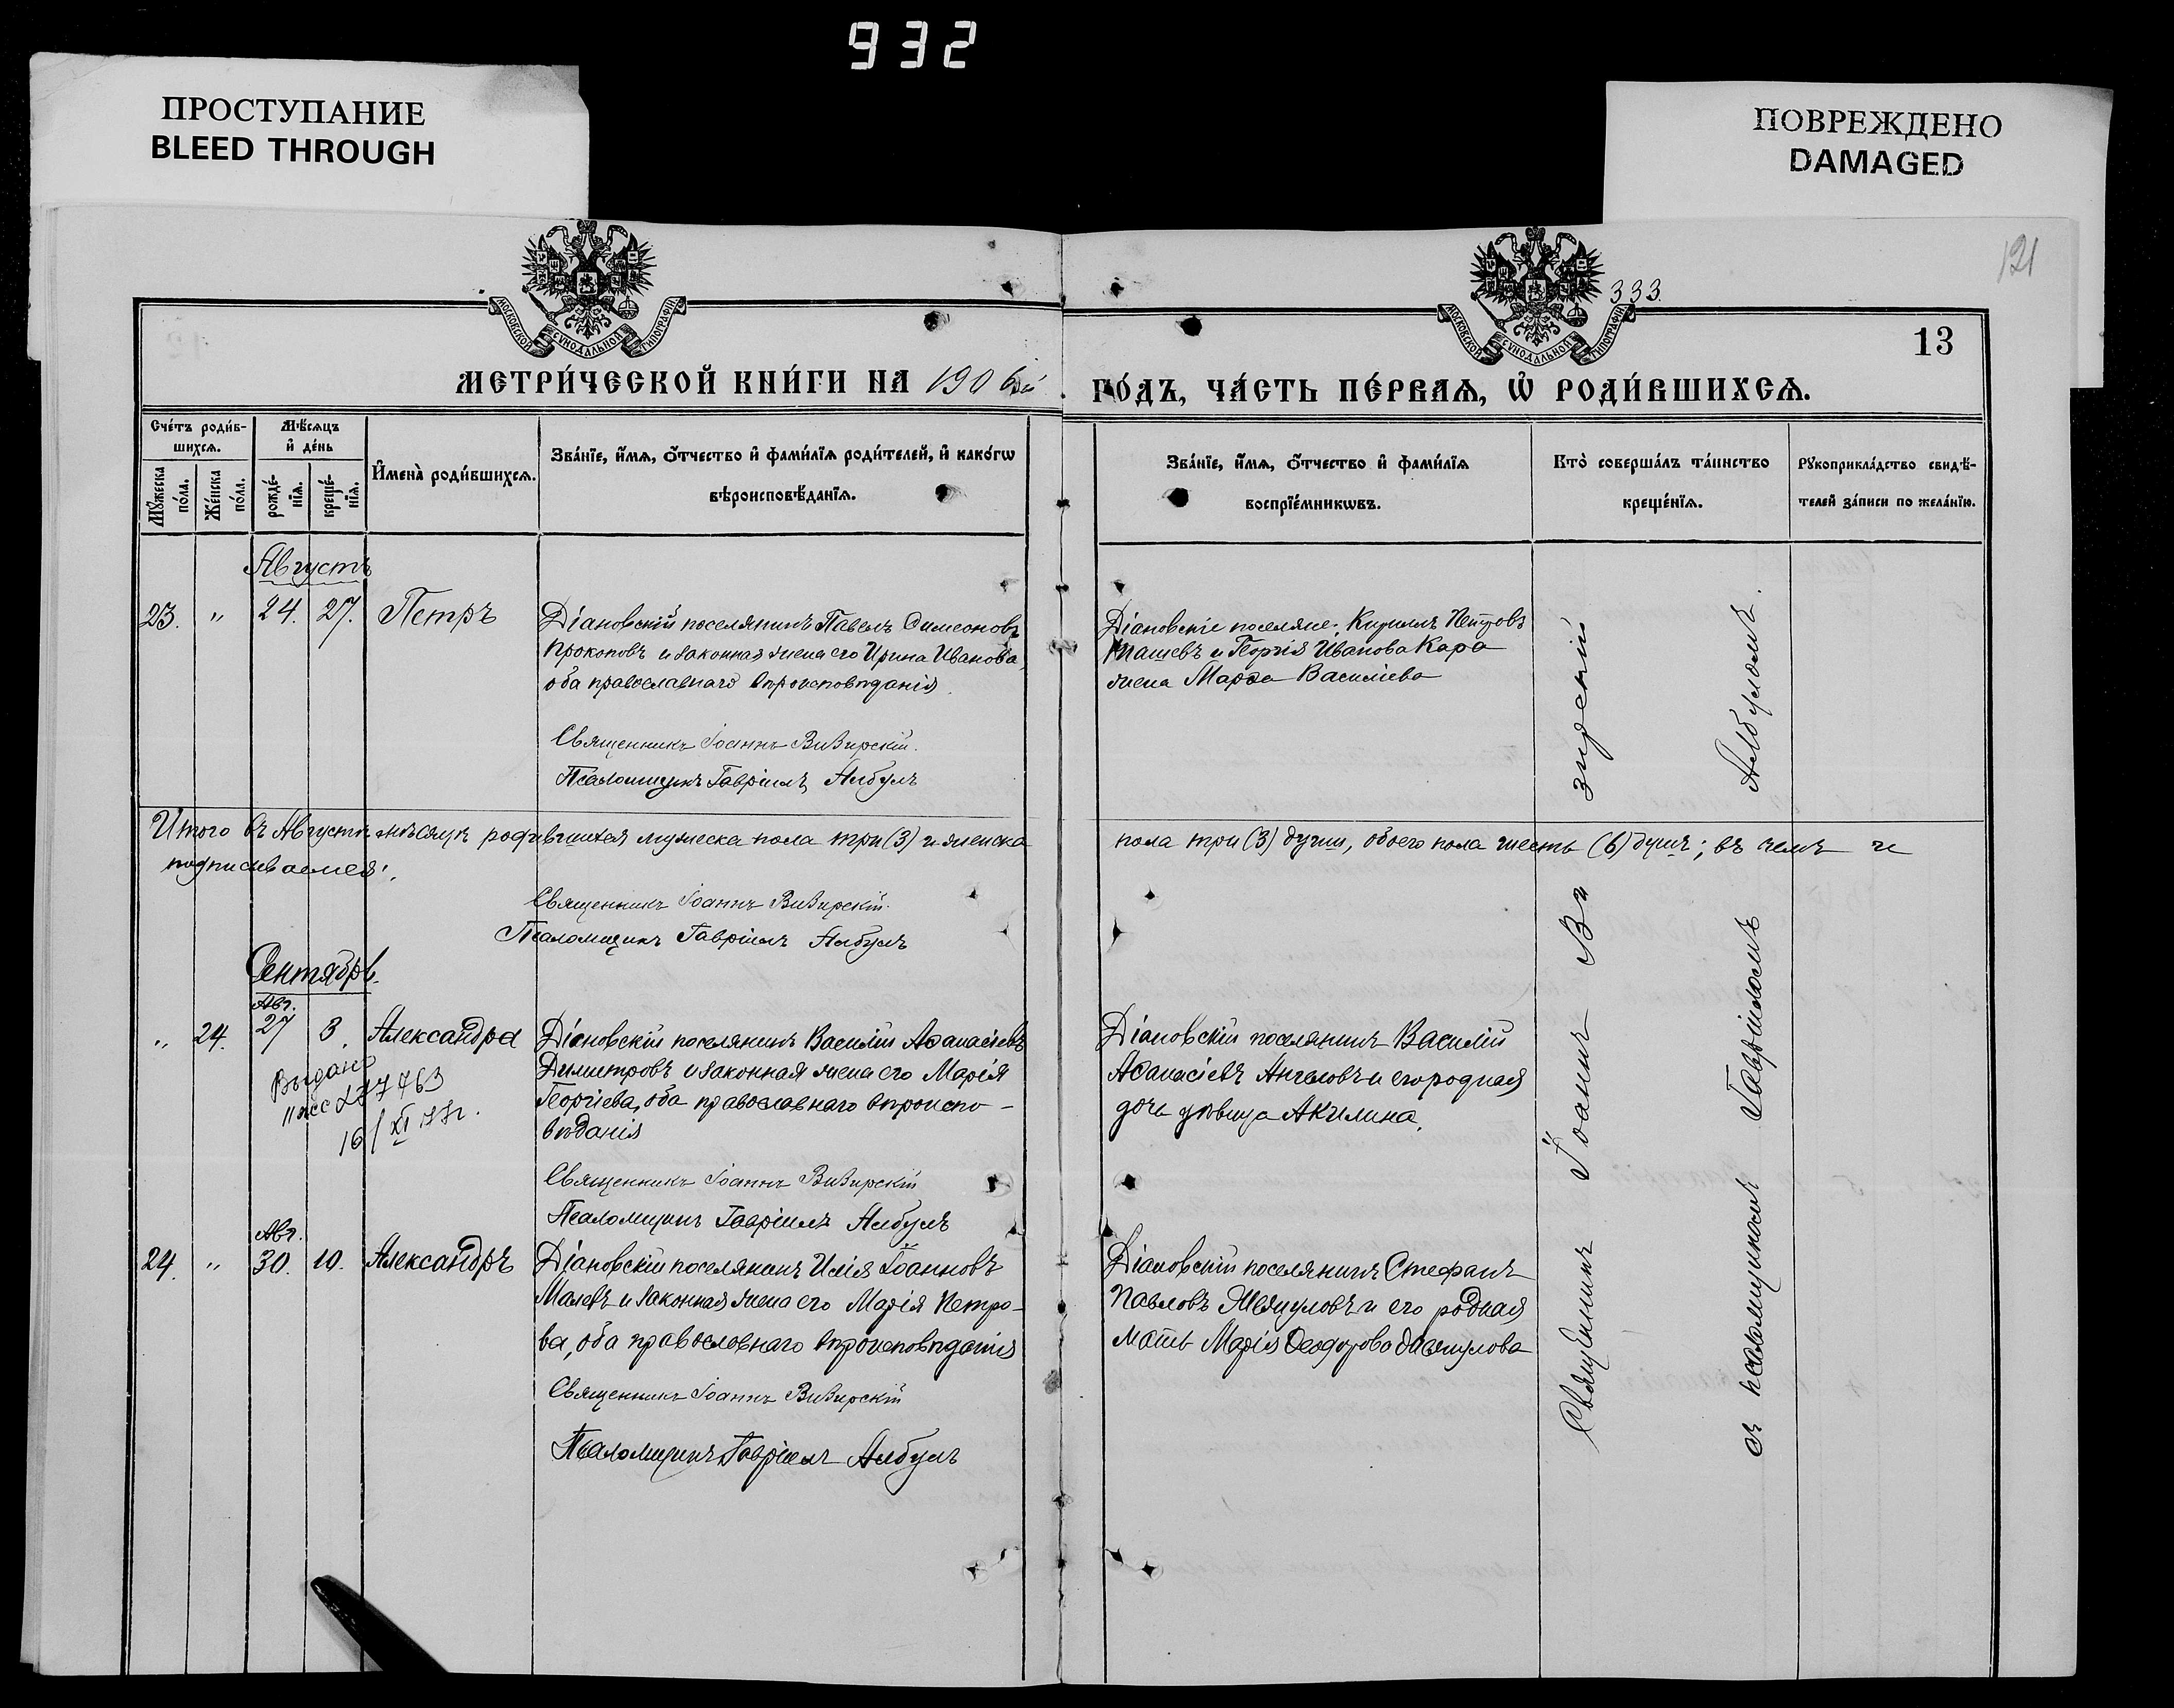 932
ПРОСТУПАНИЕ
BLEED THROUGH
ПОВРЕЖДЕНО
DAMAGED
121
333.
13
МОСКОВСКОЙ СѴНОДАЛЬНОЙ ТИПОГРАФІИ
МОСКОВСКОЙ СѴНОДАЛЬНОЙ ТИПОГРАФІИ
МЕТРИ́ЧЕСКОЙ КНИ́ГИ НА 1906ой
ГО́ДЪ, ЧА́СТЬ ПЕ́РВАѦ, Ѡ҆ РОДИ́ВШИХСѦ.
Сче́тъ роди́в-
шихсѧ.
Мꙋ́жеска по́ла.
Же́нска по́ла.
Мѣ́сѧцъ
и҆ де́нь
рожде́-
нїѧ.
креще́-
нїѧ.
И҆мена̀ роди́вшихсѧ.
Зва́нїе, и҆́мѧ, ѻ҆́тчество и҆ фами́лїѧ роди́телей, и҆ како́гѡ
вѣроисповѣ́данїѧ.
Зва́нїе, и҆́мѧ, ѻ҆́тчество и҆ фами́лїѧ
воспрїе́мникѡвъ.
Кто̀ соверша́лъ та́инство
креще́нїѧ.
Рꙋкоприкла́дство свидѣ́-
телей за́писи по жела́нїю.
Августъ
23. " 24. 27. Петръ
Діановскій поселянинъ Павелъ Симеоновъ
Прокоповъ и законная жена его Ирина Иванова,
оба православнаго вѣроисповѣданія.
Священникъ Іоаннъ Визирскій.
Псаломщикъ Гавріилъ Албулъ
Діановскіе поселяне: Кириллъ Петровъ
Ташевъ и Георгія Иванова Кара
жена Марѳа Василіева
Итого въ Августѣ мѣсяцѣ родившихся мужеска пола три (3) и женска
пола три (3) души, обоего пола шесть (6) душъ; въ чемъ и
подписываемся:
Священникъ Іоаннъ Визирскій.
Псаломщикъ Гавріилъ Албулъ
Сентябрь.
Авг.
" 24. 27 3. Александра
Выдано
16/XI 77г.
Діановскій поселянинъ Василій Аѳанасіевъ
Димитровъ и законная жена его Марія
Георгіева, оба православнаго вѣроиспо-
вѣданія
Священникъ Іоаннъ Визирскій
Псаломщикъ Гавріилъ Албулъ
Діановскій поселянинъ Василій
Аѳанасіевъ Ангеловъ и его родная
дочь дѣвица Акилина.
Авг.
24. " 30. 10. Александръ
Діановскій поселянинъ Илія Іоанновъ
Малевъ и законная жена его Марія Петро-
ва, оба православнаго вѣроисповѣданія
Священникъ Іоаннъ Визирскій
Псаломщикъ Гавріилъ Албулъ
Діановскій поселянинъ Стефанъ
Павловъ и его родная
мать Марія Ѳеодорова
Священникъ Іоаннъ Визирскій
съ псаломщикомъ Гавріиломъ Албуломъ.